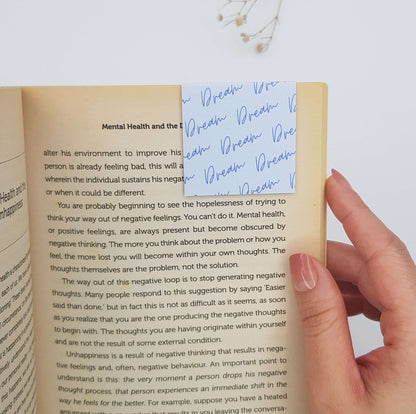 Health and the
nhappiness
Mental Health and the D
alter his environment to improve his
person is already feeling bad, this will a
wherein the individual sustains his negat
or when it could be different.
You are probably beginning to see the hopelessness of trying to
think your way out of negative feelings. You can't do it. Mental health,
or positive feelings, are always present but become obscured by
negative thinking. The more you think about the problem or how you
feel, the more lost you will become within your own thoughts. The
thoughts themselves are the problem, not the solution.
The way out of this negative loop is to stop generating negative
thoughts. Many people respond to this suggestion by saying 'Easier
said than done,' but in fact this is not as difficult as it seems, as soon
as you realize that you are the one producing the negative thoughts
to begin with. The thoughts you are having originate within yourself
and are not the result of some external condition.
Unhappiness is a result of negative thinking that results in nega-
tive feelings and, often, negative behaviour. An important point to
understand is this: the very moment a person drops his negative
thought process, that person experiences an immediate shift in the
way he feels for the better. For example, suppose you have a heated
argument with a that results in you leaving the conversa-
Dream Dream
Dream Dream
eam Dream Dream
Dream Dream
Dream